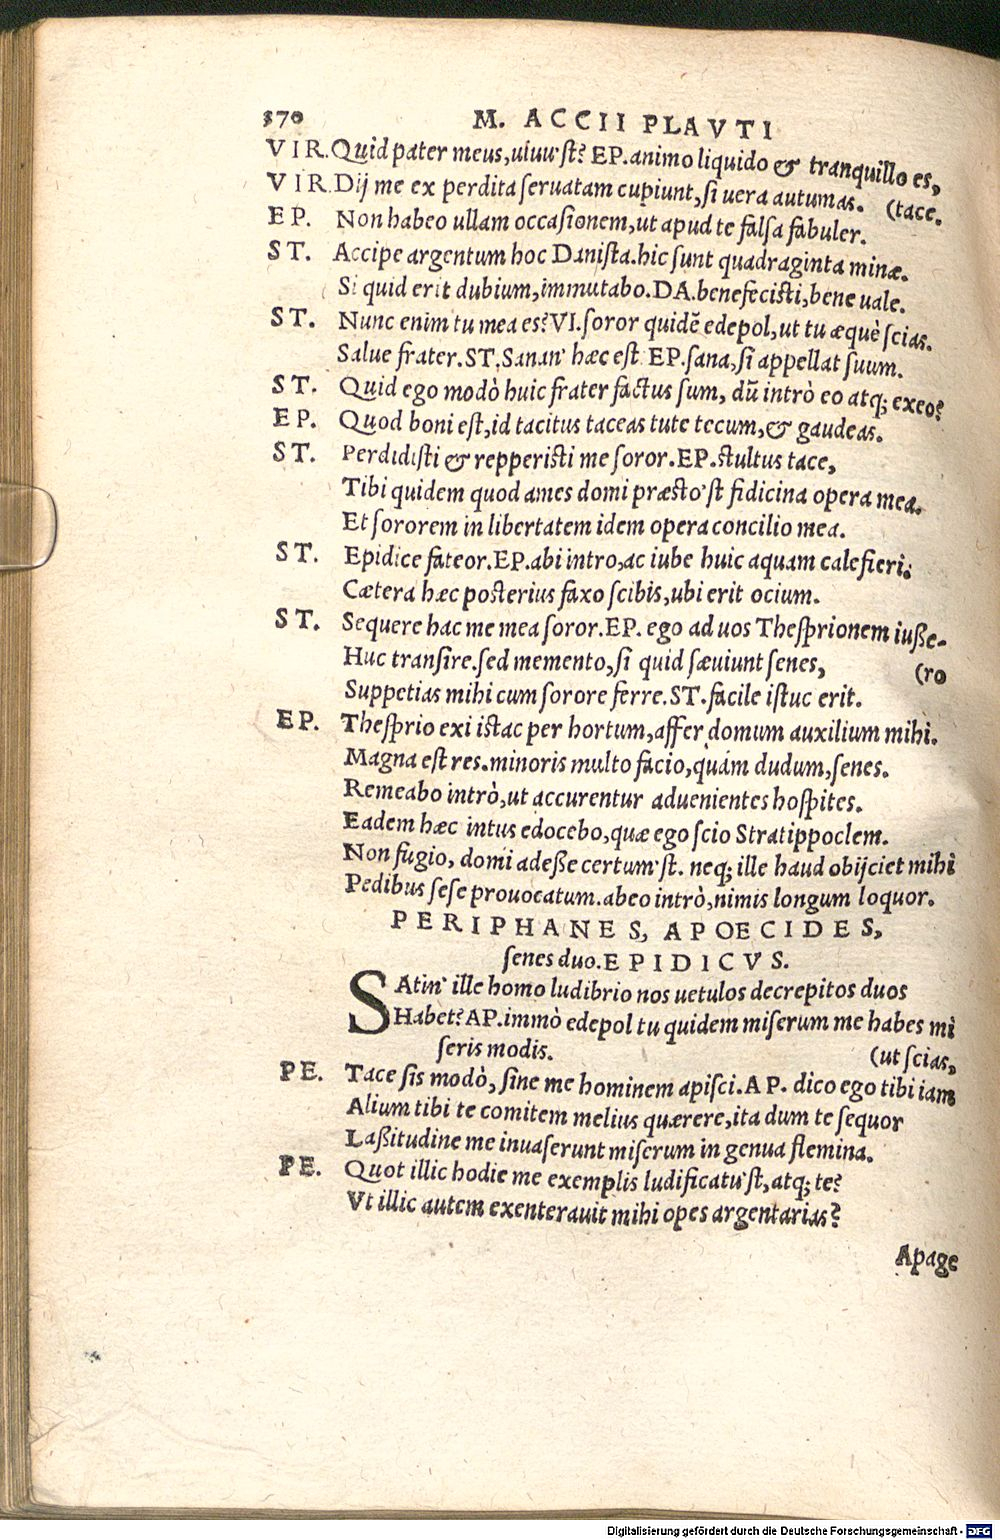 370 M. ACCII PLAVTI
VIR. Quid pater meus, uiuu'st? EP. animo liquido & tranquillo es,
VIR. Dij me ex perdita seruatam cupiunt, si uera autumas. (tace.
EP. Non habeo ullam occasionem, ut apud te falsa fabuler.
ST. Accipe argentum hoc Danista. hic sunt quadraginta minæ.
Si quid erit dubium, immutabo. DA. benefecisti, bene uale.
ST. Nunc enim tu mea es? VI. soror quidẽ edepol, ut tu æquè scias.
Salue frater. ST. Sanan' hæc est EP. sana, si appellat suum.
ST. Quid ego modò huic frater factus sum, dũ intrò eo atq; exeo?
EP. Quod boni est, id tacitus taceas tute tecum, & gaudeas.
ST. Perdidisti & repperisti me soror. EP. stultus tace,
Tibi quidem quod ames domi præsto'st fidicina opera mea.
Et sororem in libertatem idem opera concilio mea.
ST. Epidice fateor. EP. abi intro, ac iube huic aquam calefieri:
Cætera hæc posterius faxo scibis, ubi erit ocium.
ST. Sequere hac me mea soror. EP. ego ad uos Thesprionem iusse-
Huc transire. sed memento, si quid sæuiunt senes, (ro
Suppetias mihi cum sorore ferre. ST. facile istuc erit.
EP. Thesprio exi istac per hortum, affer domum auxilium mihi.
Magna est res. minoris multo facio, quàm dudum, senes.
Remeabo intrò, ut accurentur aduenientes hospites.
Eadem hæc intus edocebo, quæ ego scio Stratippoclem.
Non fugio, domi adesse certum'st. neq; ille haud obijciet mihi
Pedibus sese prouocatum. abeo intrò, nimis longum loquor.
PERIPHANES, APOECIDES,
senes duo. EPIDICVS.
SAtin' ille homo ludibrio nos uetulos decrepitos duos
Habet? AP. immò edepol tu quidem miserum me habes mi
seris modis. (ut scias,
PE. Tace sis modò, sine me hominem apisci. AP. dico ego tibi iam
Alium tibi te comitem melius quærere, ita dum te sequor
Lassitudine me inuaserunt miserum in genua flemina.
PE. Quot illic hodie me exemplis ludificatu'st, atq; te?
Vt illic autem exenterauit mihi opes argentarias?
Apage
Digitalisierung gefördert durch die Deutsche Forschungsgemeinschaft - DFG